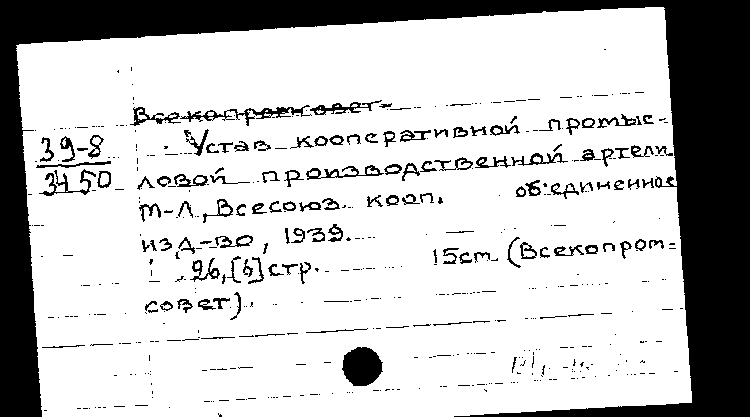 Всекопромсовет-
39-8
3450
Устав кооперативной промыс-
ловой производственной артели
М-Л, Всесоюз. кооп. об'единенное
изд-во, 1939.
26, [6] стр. 15см (Всекопром-
совет).